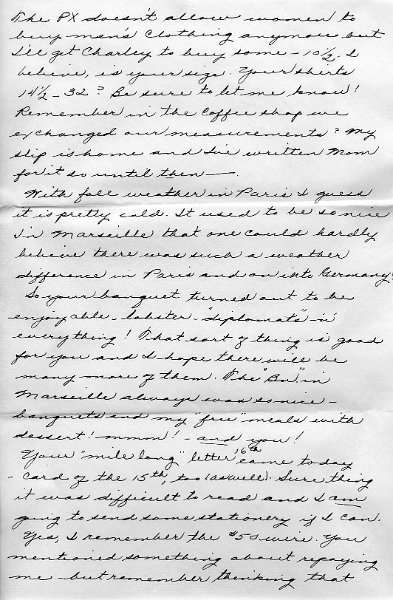 The PX doesn't allow women to
buy men's clothing anymore but
I'll get Charley to buy some - 10½, I
believe, is your size. Your shirts
14½ - 32? Be sure to let me know!
Remember in the coffee shop we
exchanged our measurements? My
slip is home and I've written Mom
for it so until then —.
With fall weather in Paris I guess
it is pretty cold. It used to be so nice
in Marseille that one could hardly
believe there was such a weather
difference in Paris and on into Germany.
So your banquet turned out to be
enjoyable - lobster - "diplomats" 'n'
everything! That sort of thing is good
for you and I hope there will be
many more of them. The "Bn" in
Marseille always was so nice -
banquets and my "free" meals with
dessert! mmm! - and you!
Your "mile long" letter 16th came today
- card of the 15th, too (as well). Sure thing
it was difficult to read and I am
going to send some stationery if I can.
Yes, I remember the $50 wire. You
mentioned something about repaying
me - but remember thinking that